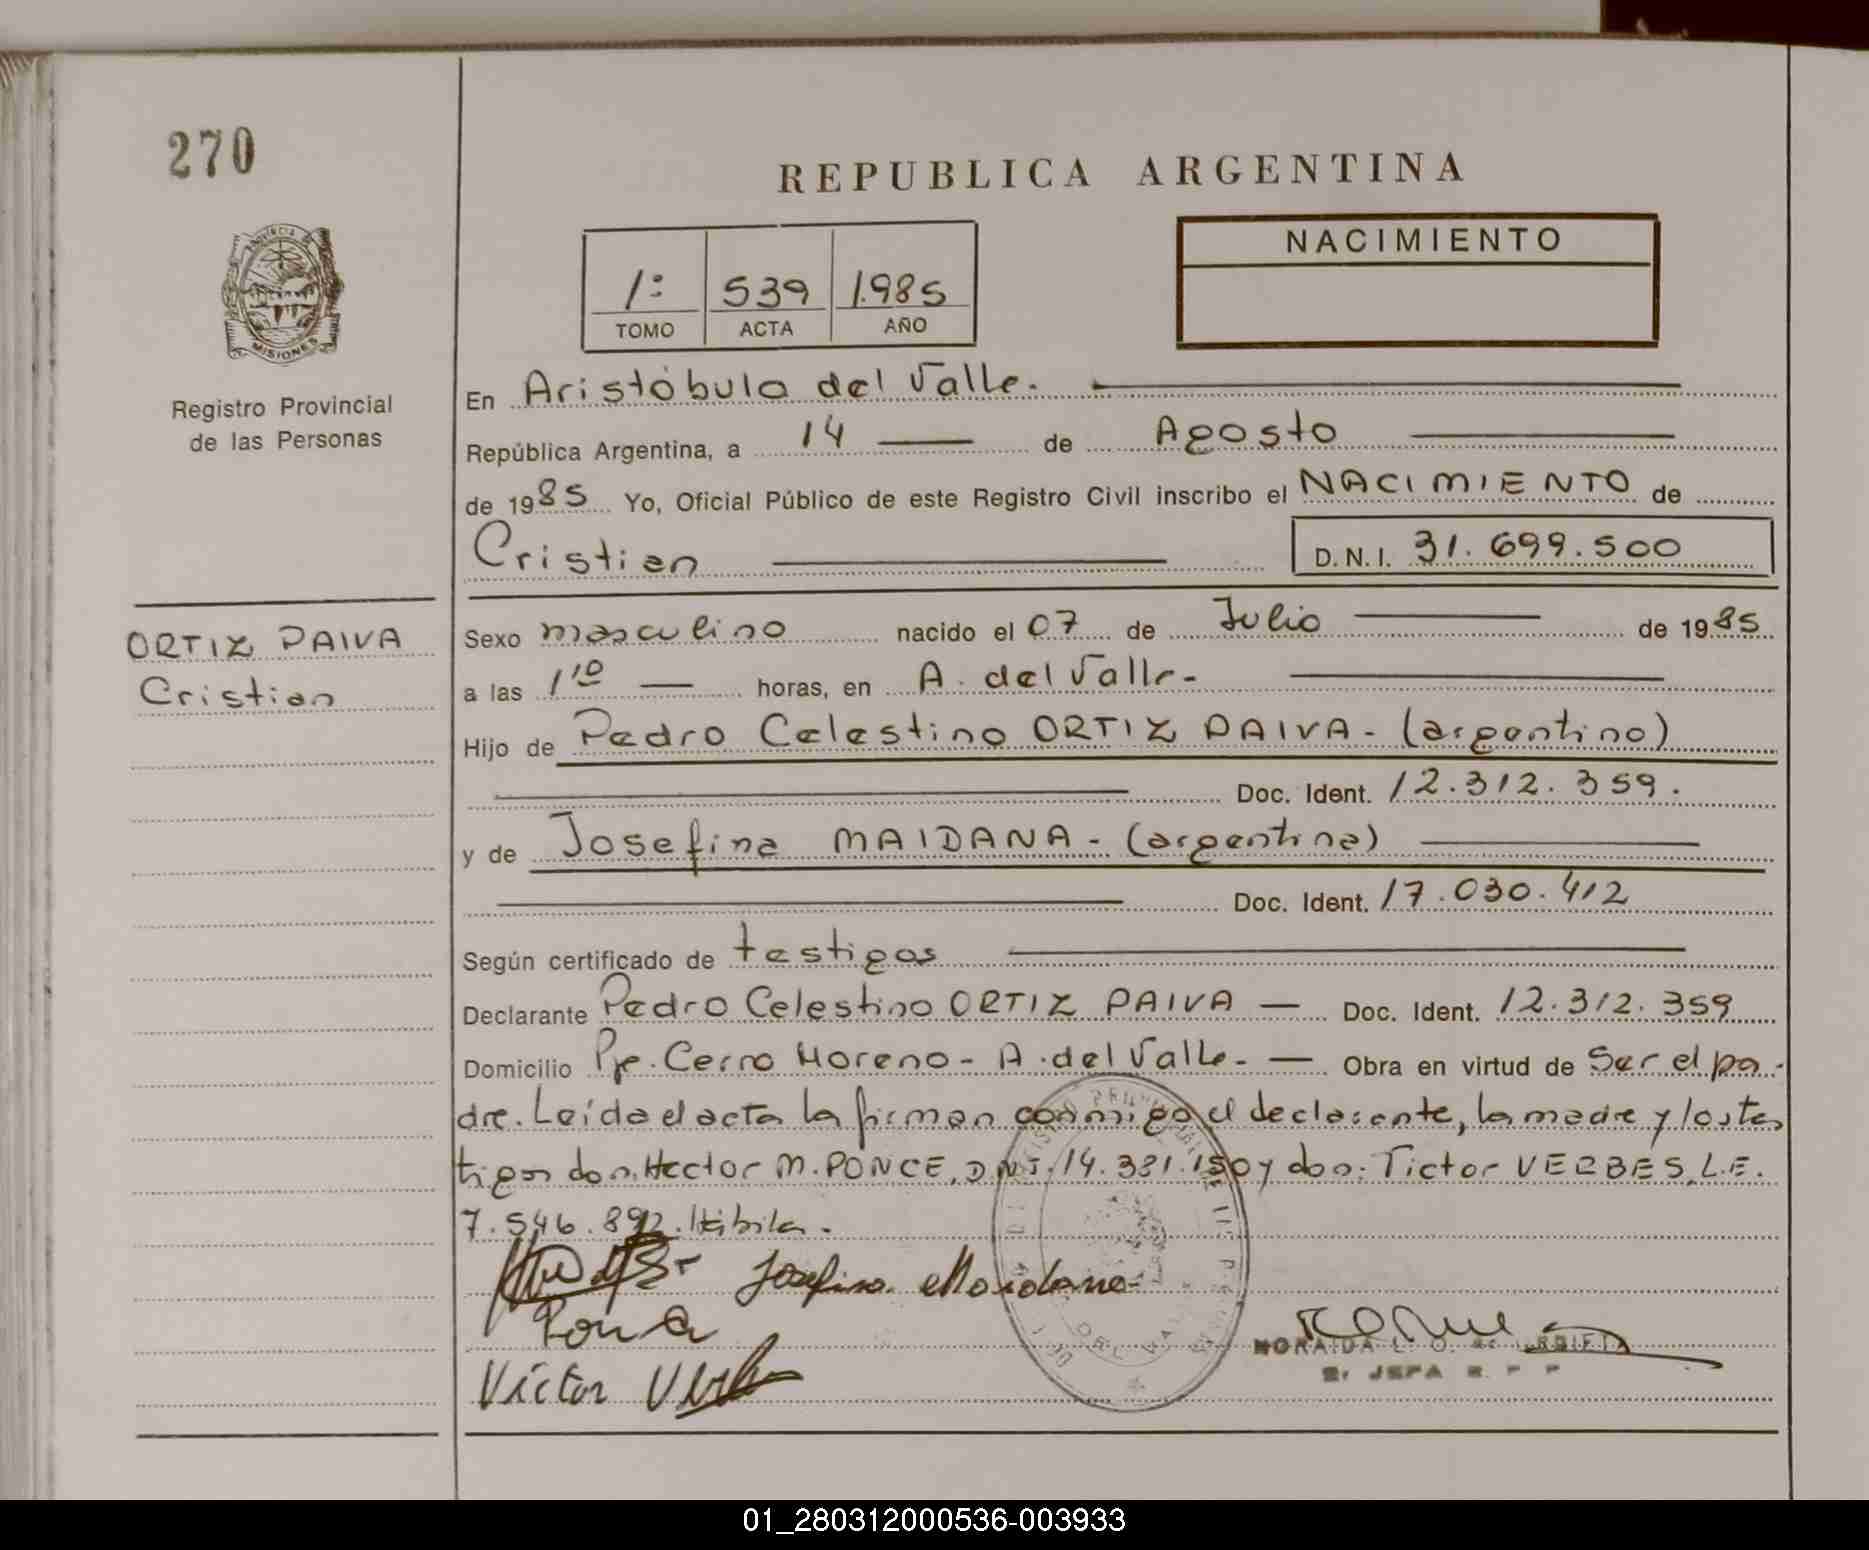 270
REPUBLICA ARGENTINA
PROVINCIA DE
MISIONES
Registro Provincial
de las Personas
1º 539 1.985
TOMO ACTA AÑO
NACIMIENTO
En Aristóbulo del Valle.
República Argentina, a 14 de Agosto
de 1985 Yo, Oficial Público de este Registro Civil inscribo el NACIMIENTO de
Cristian D.N.I. 31.699.500
ORTIZ PAIVA
Cristian
Sexo masculino nacido el 07 de Julio de 1985
a las 1¹⁰ horas, en A. del Valle-
Hijo de Pedro Celestino ORTIZ PAIVA - (argentino)
Doc. Ident. 12.312.359.
y de Josefina MAIDANA - (argentina)
Doc. Ident. 17.030.412
Según certificado de testigos
Declarante Pedro Celestino ORTIZ PAIVA — Doc. Ident. 12.312.359
Domicilio Pje. Cerro Moreno - A. del Valle - — Obra en virtud de Ser el pa-
dre. Leída el acta la firman conmigo el declarante, la madre y los tes
tigos don. Hector M. PONCE, D.N.I. 14.331.150 y don: Tictor VERBES, L.E.
7.546.892.
Josefina Maidana
Victor
JEFA R. P. P
01_280312000536-003933